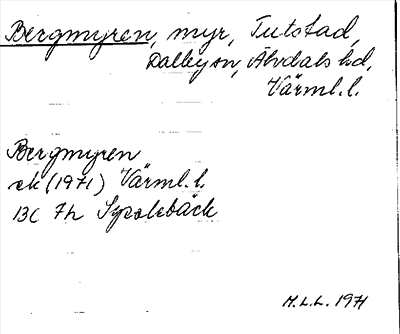 Bergmyren, myr, Tutstad,
Dalbysn, Älvdals hd,
Värml. l.
Bergmyren
ek (1971) Värml. l.
13C 7h Sysslebäck
M.L.L. 1971